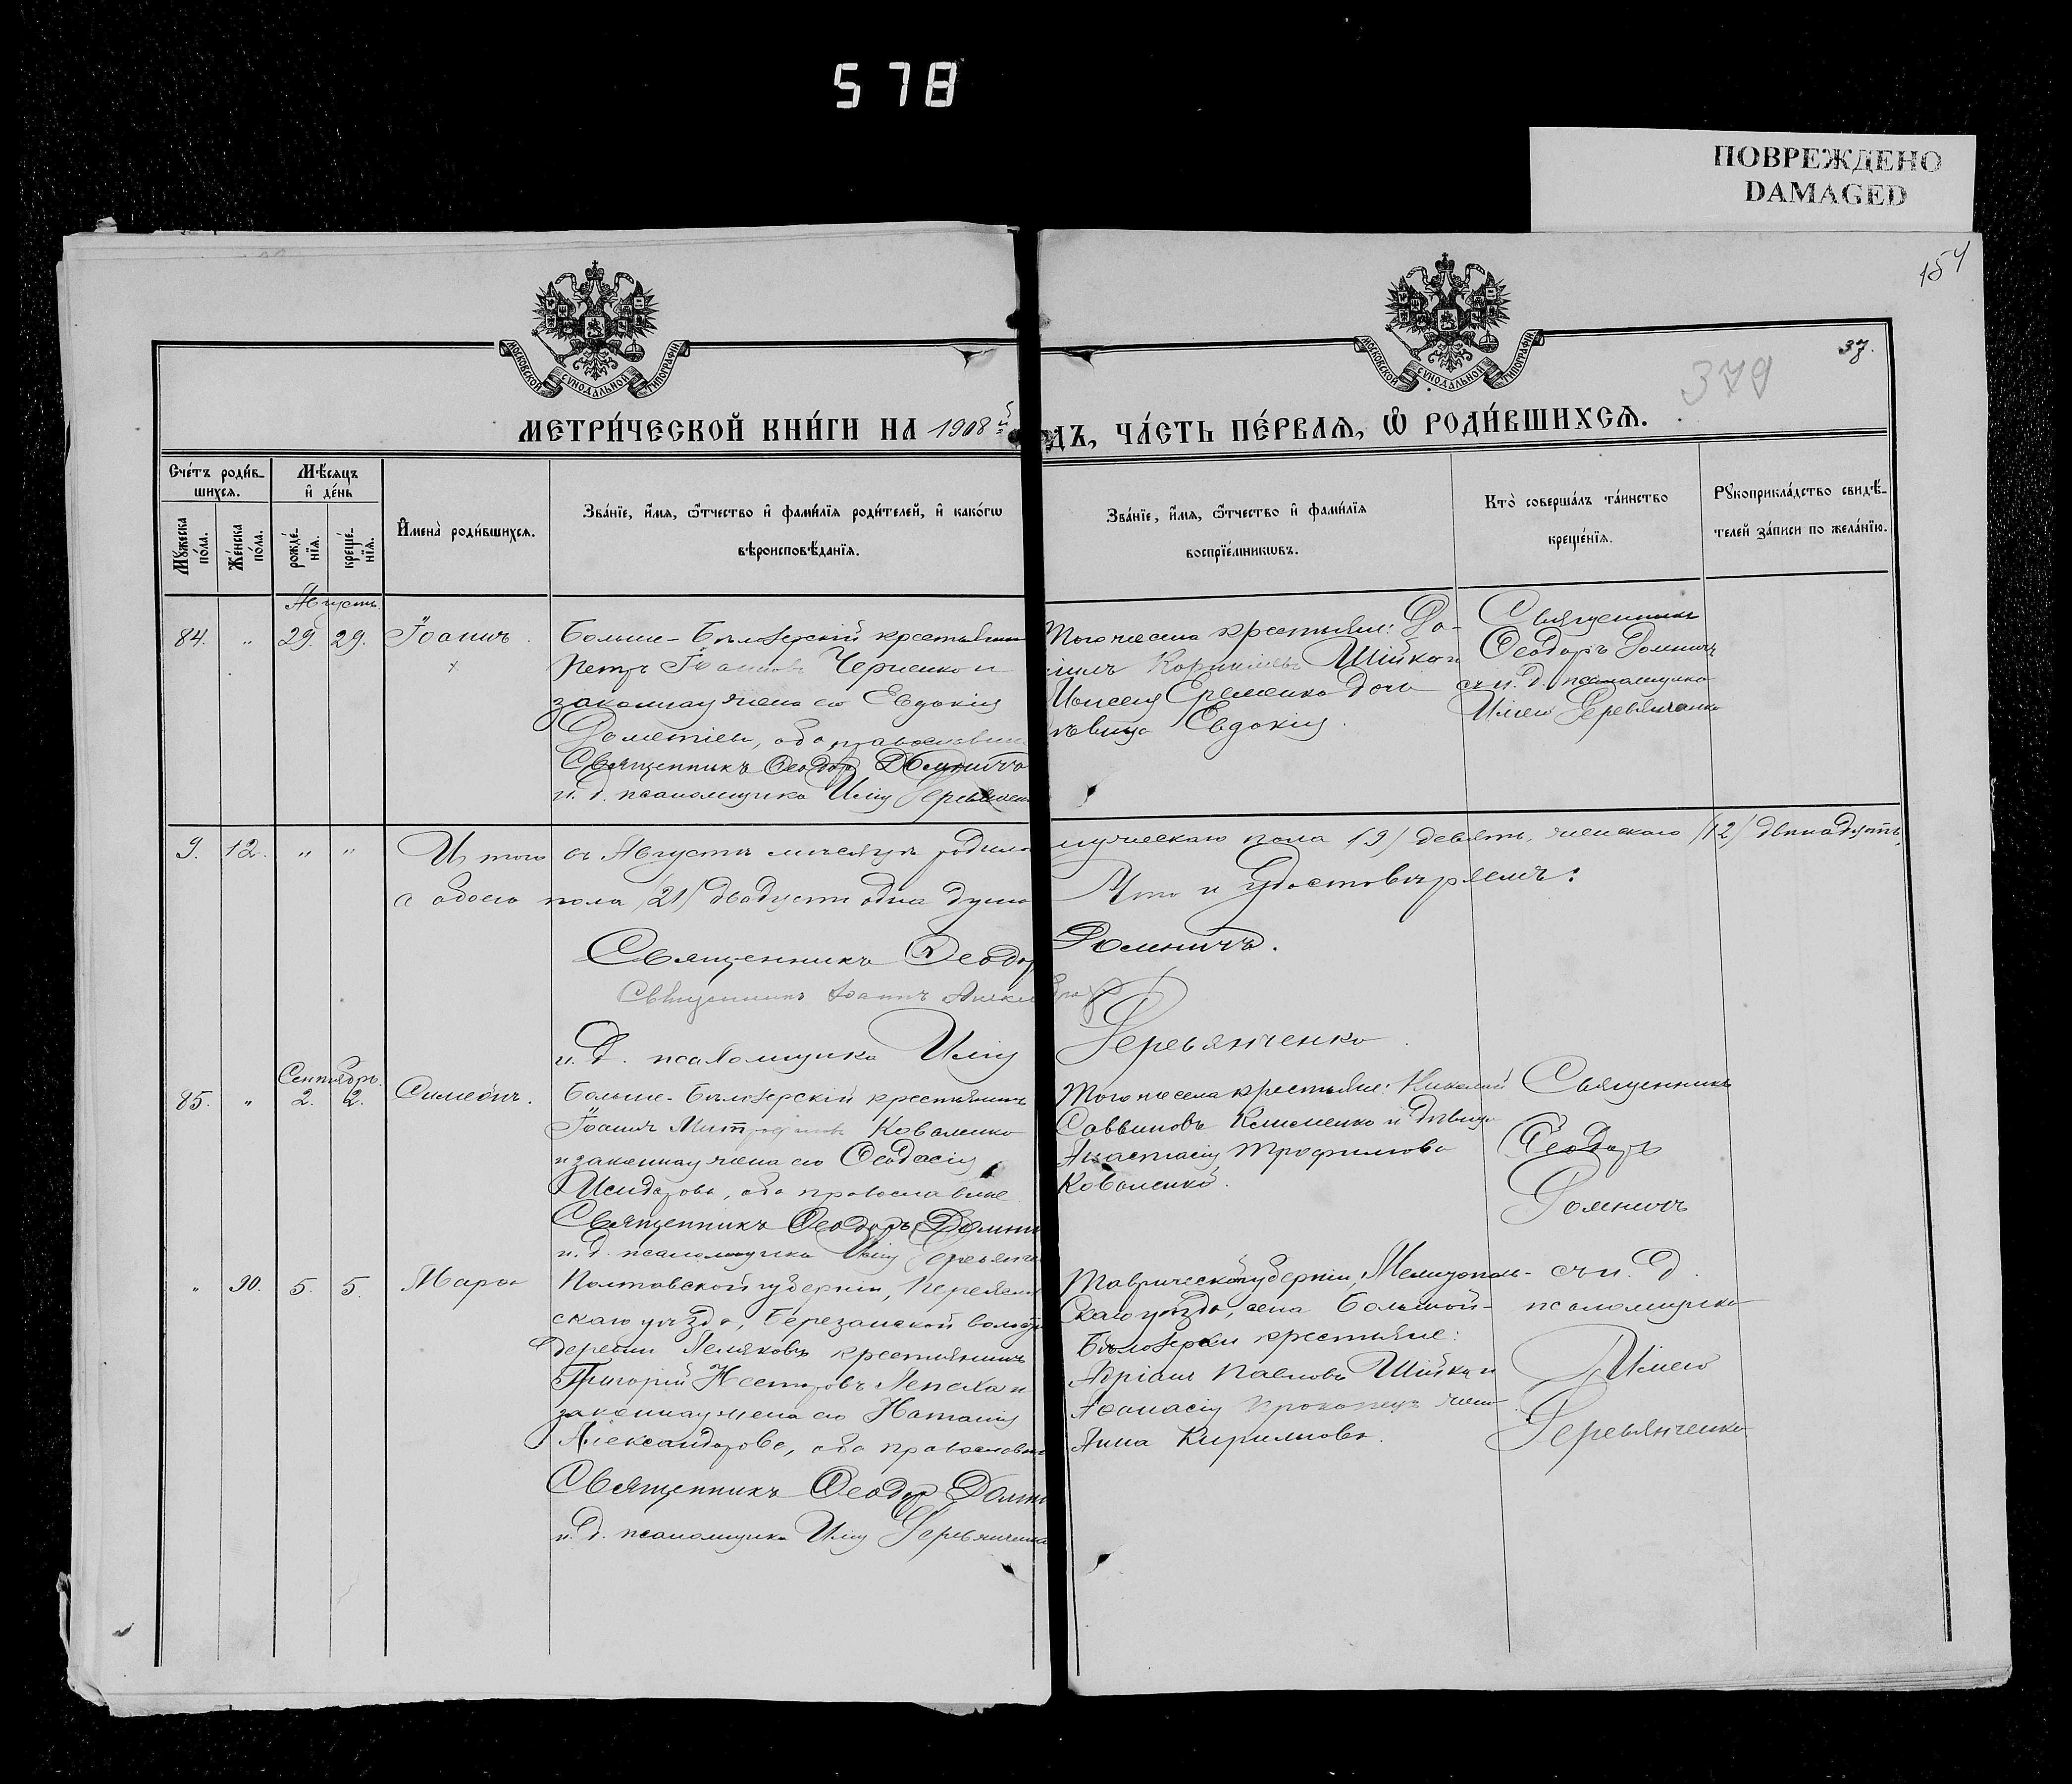 578
ПОВРЕЖДЕНО
DAMAGED
154
МОСКОВСКОЙ СУНОДАЛЬНОЙ ТИПОГРАФИИ
МОСКОВСКОЙ СУНОДАЛЬНОЙ ТИПОГРАФИИ
37.
379
МЕТРИ́ЧЕСКОЙ КНИ́ГИ НА 1908 й
ДЪ, ЧА́СТЬ ПЕ́РВАЯ, Ѡ РОДИ́ВШИХСЯ.
Сче́тъ роди́в-
шихся.
Мѣ́сяцъ
и҆ де́нь
Мꙋ́жеска
по́ла.
Же́нска
по́ла.
рожде́-
нїя.
креще́-
нїя.
И҆мена̀ роди́вшихся.
Зва́нїе, и҆́мя, ѻ҆́тчество и҆ фами́лїя роди́телей, и҆ како́гѡ
вѣроисповѣ́данїя.
Зва́нїе, и҆́мя, ѻ҆́тчество и҆ фами́лїя
воспрїе́мникѡвъ.
Кто̀ соверша́лъ та́инство
креще́нїя.
Рꙋкоприкла́дство свидѣ́-
телей за́писи по жела́нїю.
Августъ.
84. „ 29. 29. Іоаннъ.
Больше-Бѣлозерскій крестьянин
Петръ Іоанновъ Черненко и
законная жена его Евдокія
Дометіева, оба православные
Священникъ Ѳеодоръ Доминичъ
и. д. псаломщика Илія Деревянчен
Того же села крестьяне: До-
Шійко и
Моисея Еременко дочь
дѣвица Евдокія.
Священникъ
Ѳеодоръ Доминичъ
съ и. д. псаломщика
Иліею Деревянченко
9. 12. „ „ Итого въ Августѣ мѣсяцѣ родило
мужескаго пола (9) девять, женскаго (12) двѣнадцать,
а обоего пола (21) двадцать одна душа
Что и удостовѣряемъ:
Священникъ Ѳеодор
Доминичъ.
Священникъ Іоаннъ
и. д. псаломщика Илія
Деревянченко.
Сентябрь.
85. „ 2. 2. Симеонъ.
Больше-Бѣлозерскій крестьянинъ
Іоаннъ Митрофановъ Коваленко
и законная жена его Ѳеодосія
Исидорова, оба православные
Священникъ Ѳеодоръ Домини
и. д. псаломщика Илія Деревянче
Того же села крестьяне: Николай
Саввиновъ Клименко и дѣвица
Анастасія Трофимова
Коваленко.
Священникъ
Ѳеодоръ
Доминичъ
„ 90. 5. 5. Марѳа
Полтавской губерніи, Переяслав
скаго уѣзда, Березанской волости
деревни Лемяковъ крестьянинъ
Григорій Несторовъ Лепеха и
законная жена его Наталія
Александрова, оба православны
Священникъ Ѳеодоръ Домин
и. д. псаломщика Илія Деревянченко
Таврической губерніи, Мелитополь-
скаго уѣзда, села Большой-
Бѣлозерки крестьяне:
Адріанъ Павловъ Шійко и
Аѳанасія Прокопецъ жена
Анна Кирилова.
съ и. д.
псаломщика
Иліею
Деревянченко